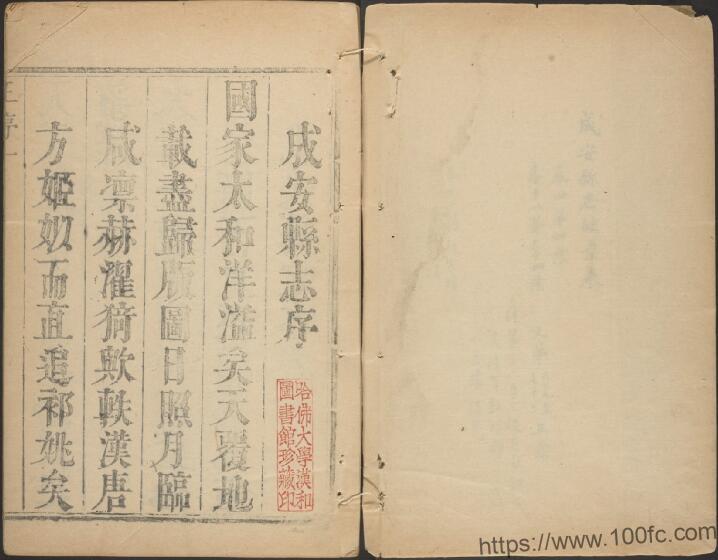 成安縣志序
國家太和洋溢矣天覆地
載盡歸版圖日照月臨
咸凛赫濯猗歟軼漢唐
方姬姒而直追祁姚矣
王序一
哈佛大學漢和
圖書館珍藏印
https://www.100fc.com